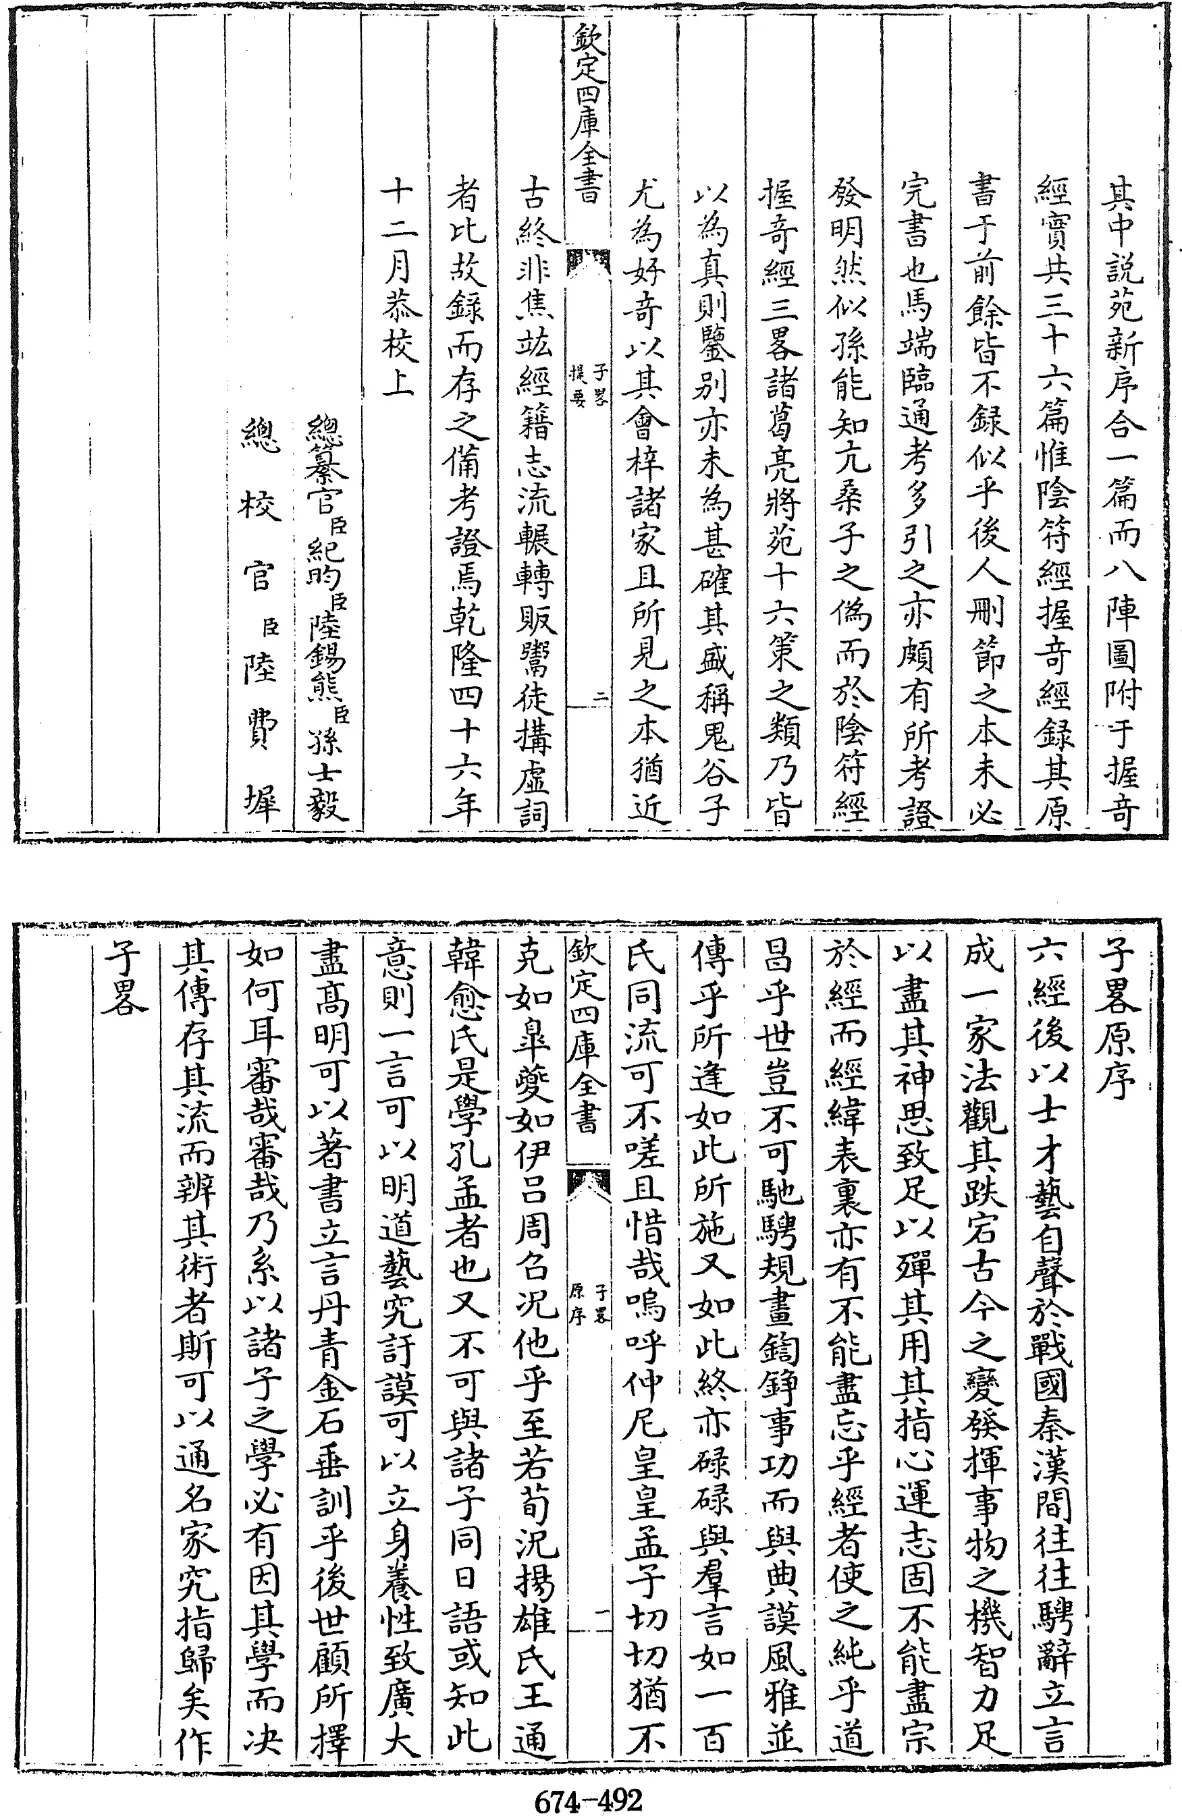 其中說苑新序合一篇而八陣圖附于握奇
經實共三十六篇惟陰符經握奇經録其原
書于前餘皆不録似乎後人刪節之本未必
完書也馬端臨通考多引之亦頗有所考證
發明然似孫能知亢桑子之偽而於陰符經
握奇經三畧諸葛亮將苑十六策之類乃皆
以為真則鑒别亦未為甚確其盛稱鬼谷子
尤為好奇以其會梓諸家且所見之本猶近
欽定四庫全書
子畧
提要
二
古終非焦竑經籍志流輾轉販鬻徒構虚詞
者比故録而存之備考證焉乾隆四十六年
十二月恭校上
總纂官臣紀昀臣陸錫熊臣孫士毅
總校官臣陸費墀
子畧原序
六經後以士才藝自聲於戰國秦漢間往往騁辭立言
成一家法觀其跌宕古今之變發揮事物之機智力足
以盡其神思致足以殫其用其指心運志固不能盡宗
於經而經緯表裏亦有不能盡忘乎經者使之純乎道
昌乎世豈不可馳騁規畫鍧錚事功而與典謨風雅並
傳乎所逢如此所施又如此終亦碌碌與羣言如一百
氏同流可不嗟且惜哉嗚呼仲尼皇皇孟子切切猶不
欽定四庫全書
子畧
原序
一
克如皐夔如伊吕周召况他乎至若荀況揚雄氏王通
韓愈氏是學孔孟者也又不可與諸子同日語或知此
意則一言可以明道藝究訏謨可以立身養性致廣大
盡髙明可以著書立言丹青金石垂訓乎後世顧所擇
如何耳審哉審哉乃系以諸子之學必有因其學而决
其傳存其流而辨其術者斯可以通名家究指歸矣作
子畧
674-492